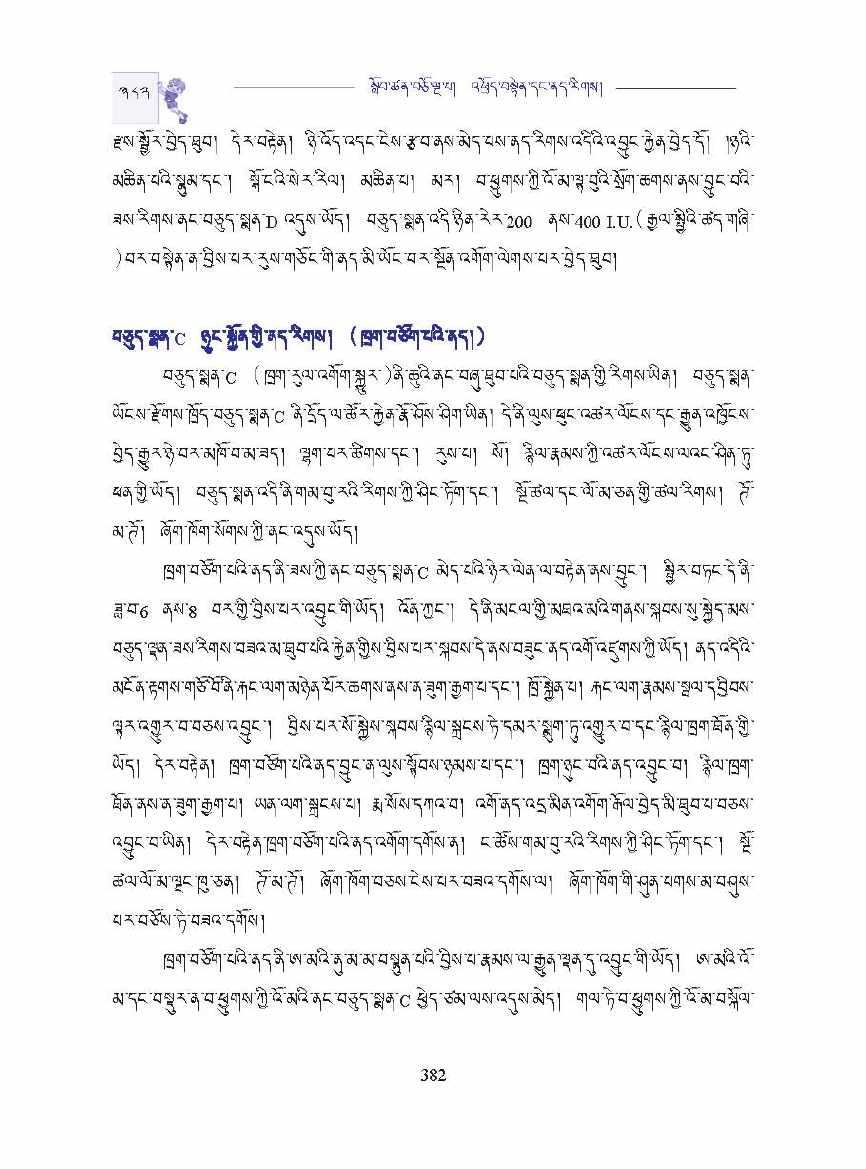 ༣༨༢ སློབ་ཚན་བཅོ་ལྔ་པ། འཕྲོད་བསྟེན་དང་ནད་རིགས།
རྫས་སྦྱོར་བྱེད་ཐུབ། དེར་བརྟེན། ཉི་འོད་འདང་ངེས་རྩ་བ་ནས་མེད་པས་ནད་རིགས་འདིའི་འབྱུང་རྐྱེན་བྱེད་དོ། །ཉའི་
མཆིན་པའི་སྣུམ་དང་། སྒོ་ངའི་སེར་རིལ། མཆིན་པ། མར། བ་ཕྱུགས་ཀྱི་འོ་མ་ལྟ་བུའི་སྲོག་ཆགས་ནས་བྱུང་བའི་
ཟས་རིགས་ནང་བཅུད་སྨན་D འདུས་ཡོད། བཅུད་སྨན་འདི་ཉིན་རེར་200 ནས་400 I.U.(རྒྱལ་སྤྱིའི་ཚད་གཞི་
)བར་བསྟེན་ན་བྱིས་པར་རུས་གཅོང་གི་ནད་མི་ཡོང་བར་སྔོན་འགོག་ལེགས་པར་བྱེད་ཐུབ།
བཅུད་སྨན་C ཉུང་སྐྱོན་གྱི་ནད་རིགས། (ཁྲག་བཙོག་པའི་ནད།)
བཅུད་སྨན་C (ཁྲག་རུལ་འགོག་སྐྱུར་)ནི་ཆུའི་ནང་བཞུ་ཐུབ་པའི་བཅུད་སྨན་གྱི་རིགས་ཡིན། བཅུད་སྨན་
ཡོངས་རྫོགས་ཁྲོད་བཅུད་སྨན་C ནི་དྲོད་ལ་ཚོར་རྐྱེན་རྣོ་ཤོས་ཤིག་ཡིན། དེ་ནི་ལུས་ཕུང་འཚར་ལོངས་དང་རྒྱུན་འཁྱོངས་
བྱེད་རྒྱུར་ཉེ་བར་མཁོ་བ་མ་ཟད། ལྷག་པར་ཚིགས་དང་། རུས་པ། སོ། རྙིལ་རྣམས་ཀྱི་འཚར་ལོངས་ལའང་ཤིན་ཏུ་
ཕན་གྱི་ཡོད། བཅུད་སྨན་འདི་ནི་གམ་བུ་རའི་རིགས་ཀྱི་ཤིང་ཏོག་དང་། སྔོ་ཚལ་དང་ལོ་མ་ཅན་གྱི་ཚལ་རིགས། ཊོ་
མ་ཊོ། ཞོག་ཁོག་སོགས་ཀྱི་ནང་འདུས་ཡོད།
ཁྲག་བཙོག་པའི་ནད་ནི་ཟས་ཀྱི་ནང་བཅུད་སྨན་C མེད་པའི་ཉེར་ལེན་ལ་བརྟེན་ནས་བྱུང་། སྤྱིར་བཏང་དེ་ནི་
ཟླ་བ་6 ནས་8 བར་གྱི་བྱིས་པར་འབྱུང་གི་ཡོད། འོན་ཀྱང་། དེ་ནི་མངལ་གྱི་མཐའ་མའི་གནས་སྐབས་སུ་སྐྱེད་མས་
བཅུད་ལྡན་ཟས་རིགས་བཟའ་མ་ཐུབ་པའི་རྐྱེན་གྱིས་བྱིས་པར་སྐབས་དེ་ནས་བཟུང་ནད་འགོ་འཛུགས་ཀྱི་ཡོད། ནད་འདིའི་
མངོན་རྟགས་གཙོ་བོ་ནི་རྐང་ལག་མཉེན་པོར་ཆགས་ནས་ན་ཟུག་རྒྱག་པ་དང་། ཁྲོ་སླེན་པ། རྐང་ལག་རྣམས་སྦལ་དབྱིབས་
ལྟར་འགྱུར་བ་བཅས་འབྱུང་། བྱིས་པར་སོ་སྐྱེས་སྐབས་རྙིལ་སྐྲངས་ཏེ་དམར་སྨུག་ཏུ་འགྱུར་བ་དང་རྙིལ་ཁྲག་ཐོན་གྱི་
ཡོད། དེར་བརྟེན། ཁྲག་བཙོག་པའི་ནད་བྱུང་ན་ལུས་སྟོབས་ཉམས་པ་དང་། ཁྲག་ཉུང་བའི་ནད་འབྱུང་བ། རྙིལ་ཁྲག་
ཐོན་ནས་ན་ཟུག་རྒྱག་པ། ཡན་ལག་སྐྲངས་པ། རྨ་སོས་དཀའ་བ། འགོ་ནད་འདྲ་མིན་འགོག་རྒོལ་བྱེད་མི་ཐུབ་པ་བཅས་
འབྱུང་བ་ཡིན། དེར་བརྟེན་ཁྲག་བཙོག་པའི་ནད་འགོག་དགོས་ན། ང་ཚོས་གམ་བུ་རའི་རིགས་ཀྱི་ཤིང་ཏོག་དང་། སྔོ་
ཚལ་ལོ་མ་ལྗང་ཁུ་ཅན། ཊོ་མ་ཊོ། ཞོག་ཁོག་བཅས་ངེས་པར་བཟའ་དགོས་ལ། ཞོག་ཁོག་གི་ཤུན་པགས་མ་བཤུས་
པར་བཙོས་ཏེ་བཟའ་དགོས།
ཁྲག་བཙོག་པའི་ནད་ནི་ཨ་མའི་ནུ་མ་མ་བསྣུན་པའི་བྱིས་པ་རྣམས་ལ་རྒྱུན་ལྡན་དུ་འབྱུང་གི་ཡོད། ཨ་མའི་འོ་
མ་དང་བསྡུར་ན་བ་ཕྱུགས་ཀྱི་འོ་མའི་ནང་བཅུད་སྨན་C ཕྱེད་ཙམ་ལས་འདུས་མེད། གལ་ཏེ་བ་ཕྱུགས་ཀྱི་འོ་མ་བསྐོལ་
382